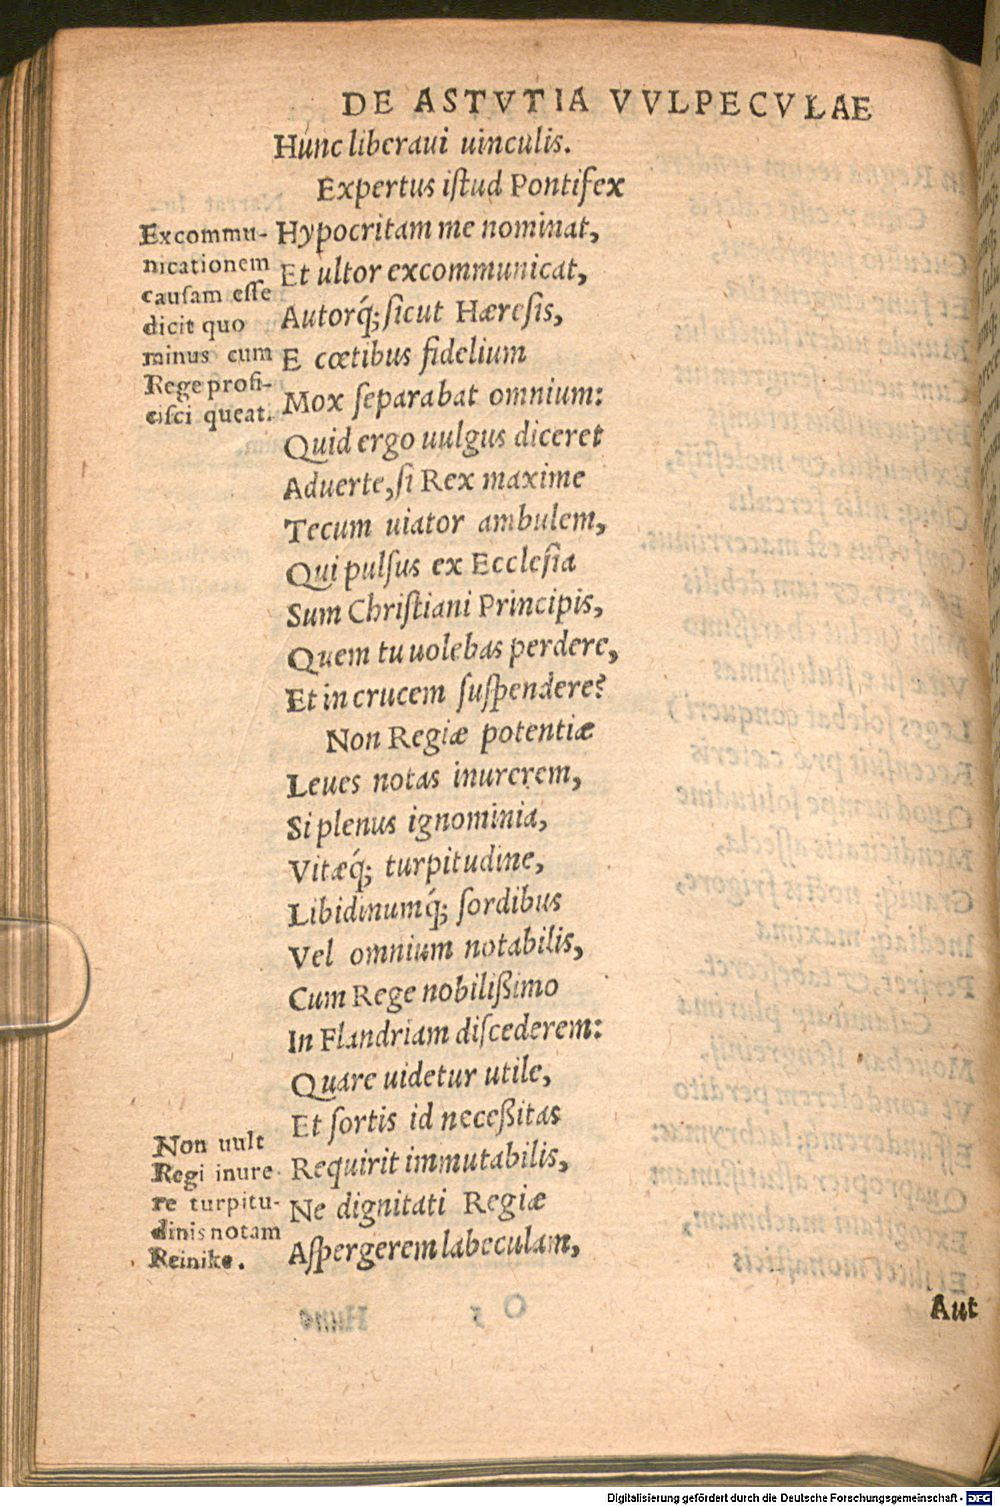 DE ASTVTIA VVLPECVLAE
Hunc liberaui uinculis.
Expertus iſtud Pontifex
Hypocritam me nominat,
Et ultor excommunicat,
Autorq́; ſicut Hæreſis,
E cœtibus fidelium
Mox ſeparabat omnium:
Quid ergo uulgus diceret
Aduerte, ſi Rex maxime
Tecum uiator ambulem,
Qui pulſus ex Eccleſia
Sum Chriſtiani Principis,
Quem tu uolebas perdere,
Et in crucem ſuſpendere?
Non Regiæ potentiæ
Leues notas inurerem,
Si plenus ignominia,
Vitæq́; turpitudine,
Libidinumq́; ſordibus
Vel omnium notabilis,
Cum Rege nobilißimo
In Flandriam diſcederem:
Quare uidetur utile,
Et ſortis id neceßitas
Requirit immutabilis,
Ne dignitati Regiæ
Aſpergerem labeculam,
Aut
Excommu-
nicationem
cauſam eſſe
dicit quo
minus cum
Rege profi-
ciſci queat.
Non uult
Regi inure-
re turpitu-
dinis notam
Reinike.
Digitalisierung gefördert durch die Deutsche Forschungsgemeinschaft - DFG